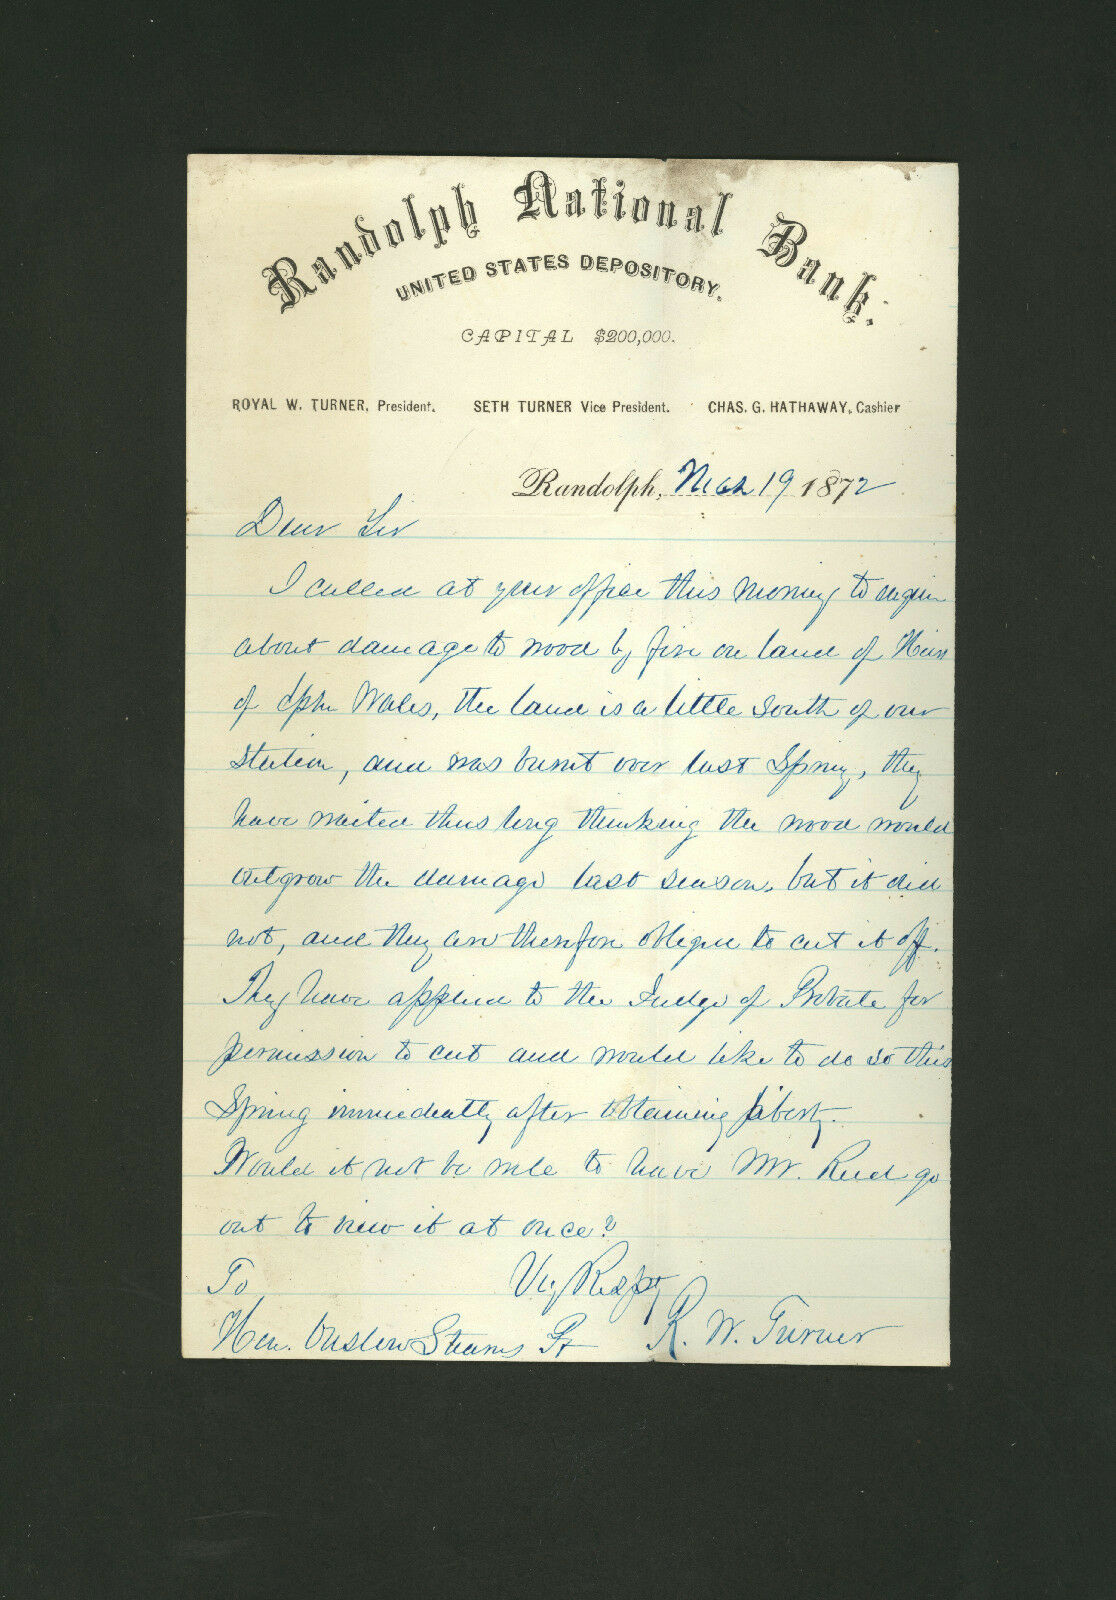 Randolph National Bank.
UNITED STATES DEPOSITORY.
CAPITAL $200,000.
ROYAL W. TURNER, President. SETH TURNER Vice President. CHAS. G. HATHAWAY, Cashier
Randolph, Mch 19 1872
Dear Sir
I called at your office this morning to enquire
about damage to wood by fire on land of Heirs
of Ephm Wales, the land is a little South of our
station, and was burnt over last Spring, they
have waited thus long thinking the wood would
outgrow the damage last season, but it did
not, and they are therefore obliged to cut it off.
They have applied to the Judge of Probate for
permission to cut and would like to do so this
Spring immediately after obtaining liberty.
Would it not be well to have Mr. Reed go
out to view it at once?
To Vy Respty
Hon. Onslow Stearns Pt R. W. Turner